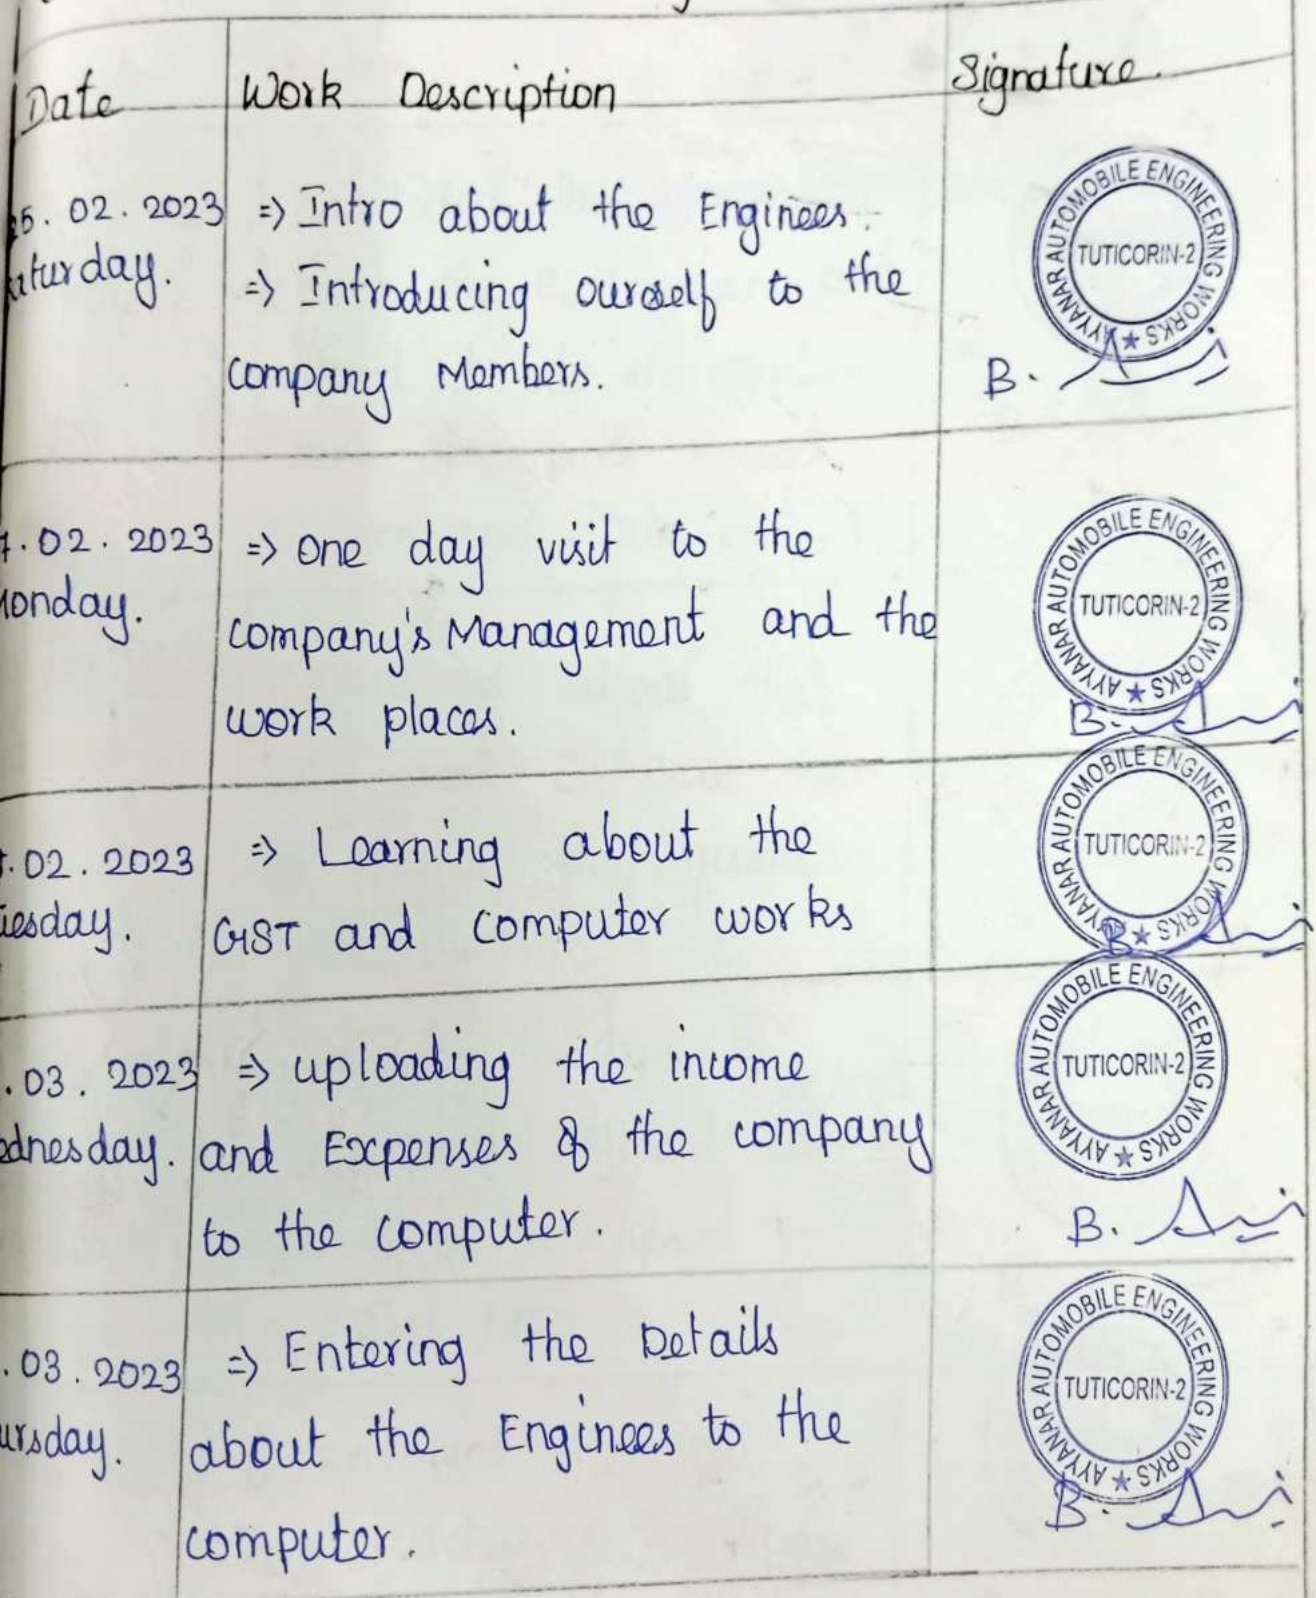 Date Work Description Signature.
25. 02. 2023 => Intro about the Enginees.
aturday. => Introducing ourself to the
company Members.
AYYANAR AUTOMOBILE ENGINEERING WORKS ★
TUTICORIN-2
B.
7. 02. 2023 => one day visit to the
Monday. company's Management and the
work places.
AYYANAR AUTOMOBILE ENGINEERING WORKS ★
TUTICORIN-2
B.
. 02. 2023 => Learning about the
uesday. GST and computer works
AYYANAR AUTOMOBILE ENGINEERING WORKS ★
TUTICORIN-2
B.
. 03. 2023 => uploading the income
ednesday. and Expenses of the company
to the computer.
AYYANAR AUTOMOBILE ENGINEERING WORKS ★
TUTICORIN-2
B.
. 03. 2023 => Entering the Details
ursday. about the Enginees to the
computer.
AYYANAR AUTOMOBILE ENGINEERING WORKS ★
TUTICORIN-2
B.